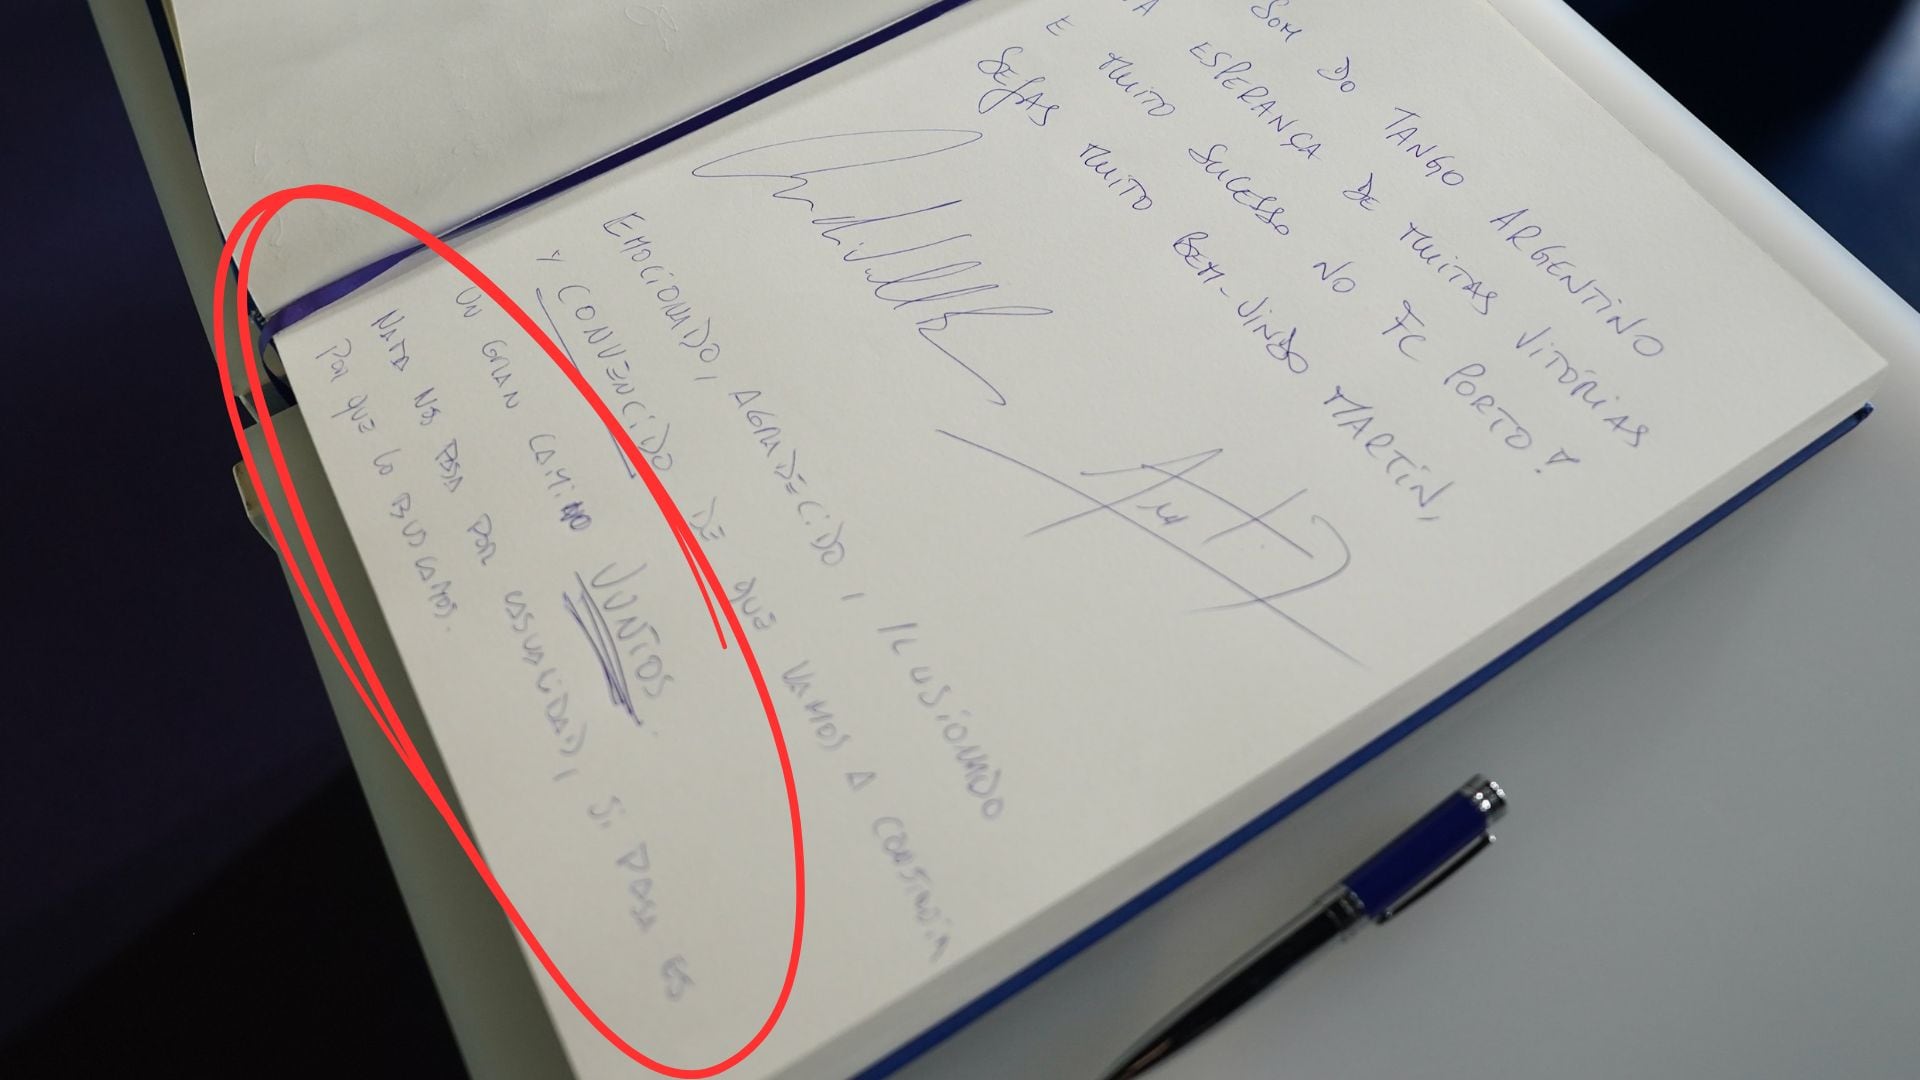 SOM DO TANGO ARGENTINO
ESPERANÇA DE MUITAS VITÓRIAS
E MUITO SUCESSO NO FC PORTO!
SEJAS MUITO BEM-VINDO MARTÍN,
EMOCIONADO, AGRADECIDO, ILUSIONADO
Y CONVENCIDO DE QUE VAMOS A CONSTRUIR
UN GRAN CAMINO JUNTOS.
NADA NOS PASA POR CASUALIDAD, SI PASA ES
POR QUE LO BUSCAMOS.